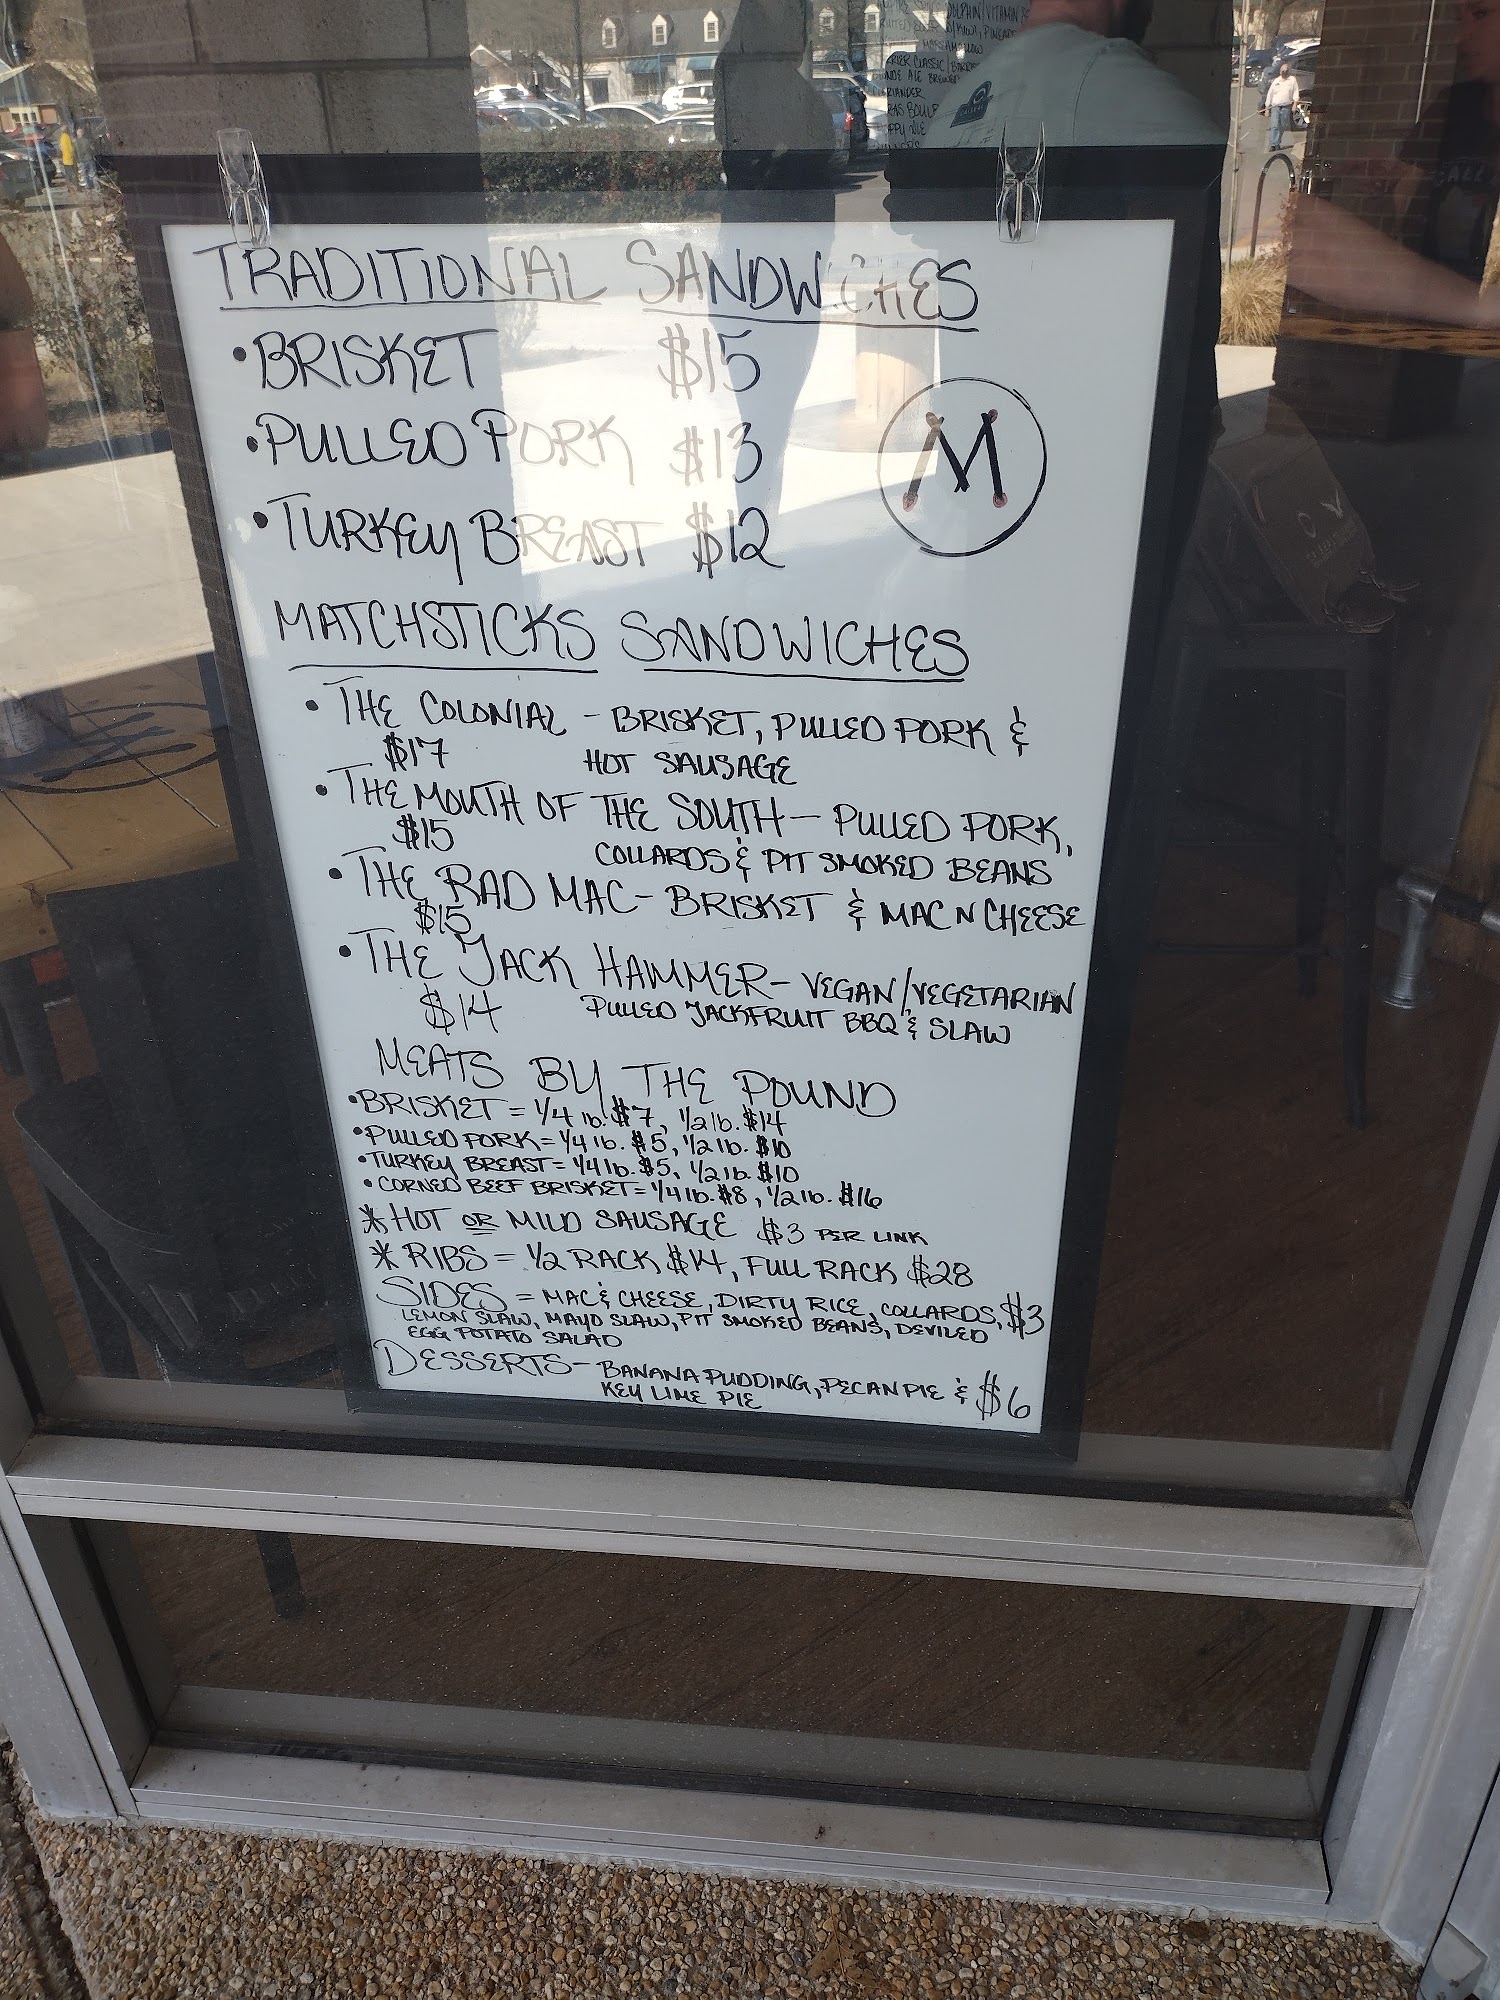 DOLPHIN/VITAMIN
MARSHMALLOW
TRADITIONAL SANDWICHES
•BRISKET $15
•PULLED PORK $13
•TURKEY BREAST $12
M
MATCHSTICKS SANDWICHES
• THE COLONIAL - BRISKET, PULLED PORK &
$17 HOT SAUSAGE
• THE MOUTH OF THE SOUTH - PULLED PORK,
$15 COLLARDS & PIT SMOKED BEANS
• THE RAD MAC - BRISKET & MAC N CHEESE
$15
• THE JACK HAMMER - VEGAN/VEGETARIAN
$14 PULLED JACKFRUIT BBQ & SLAW
MEATS BY THE POUND
•BRISKET = 1/4 lb. $7, 1/2 lb. $14
•PULLED PORK = 1/4 lb. $5, 1/2 lb. $10
•TURKEY BREAST = 1/4 lb. $5, 1/2 lb. $10
• CORNED BEEF BRISKET = 1/4 lb. $8, 1/2 lb. $16
* HOT OR MILD SAUSAGE $3 PER LINK
* RIBS = 1/2 RACK $14, FULL RACK $28
SIDES = MAC & CHEESE, DIRTY RICE, COLLARDS, $3
LEMON SLAW, MAYO SLAW, PIT SMOKED BEANS, DEVILED
EGG POTATO SALAD
DESSERTS - BANANA PUDDING, PECAN PIE & $6
KEY LIME PIE